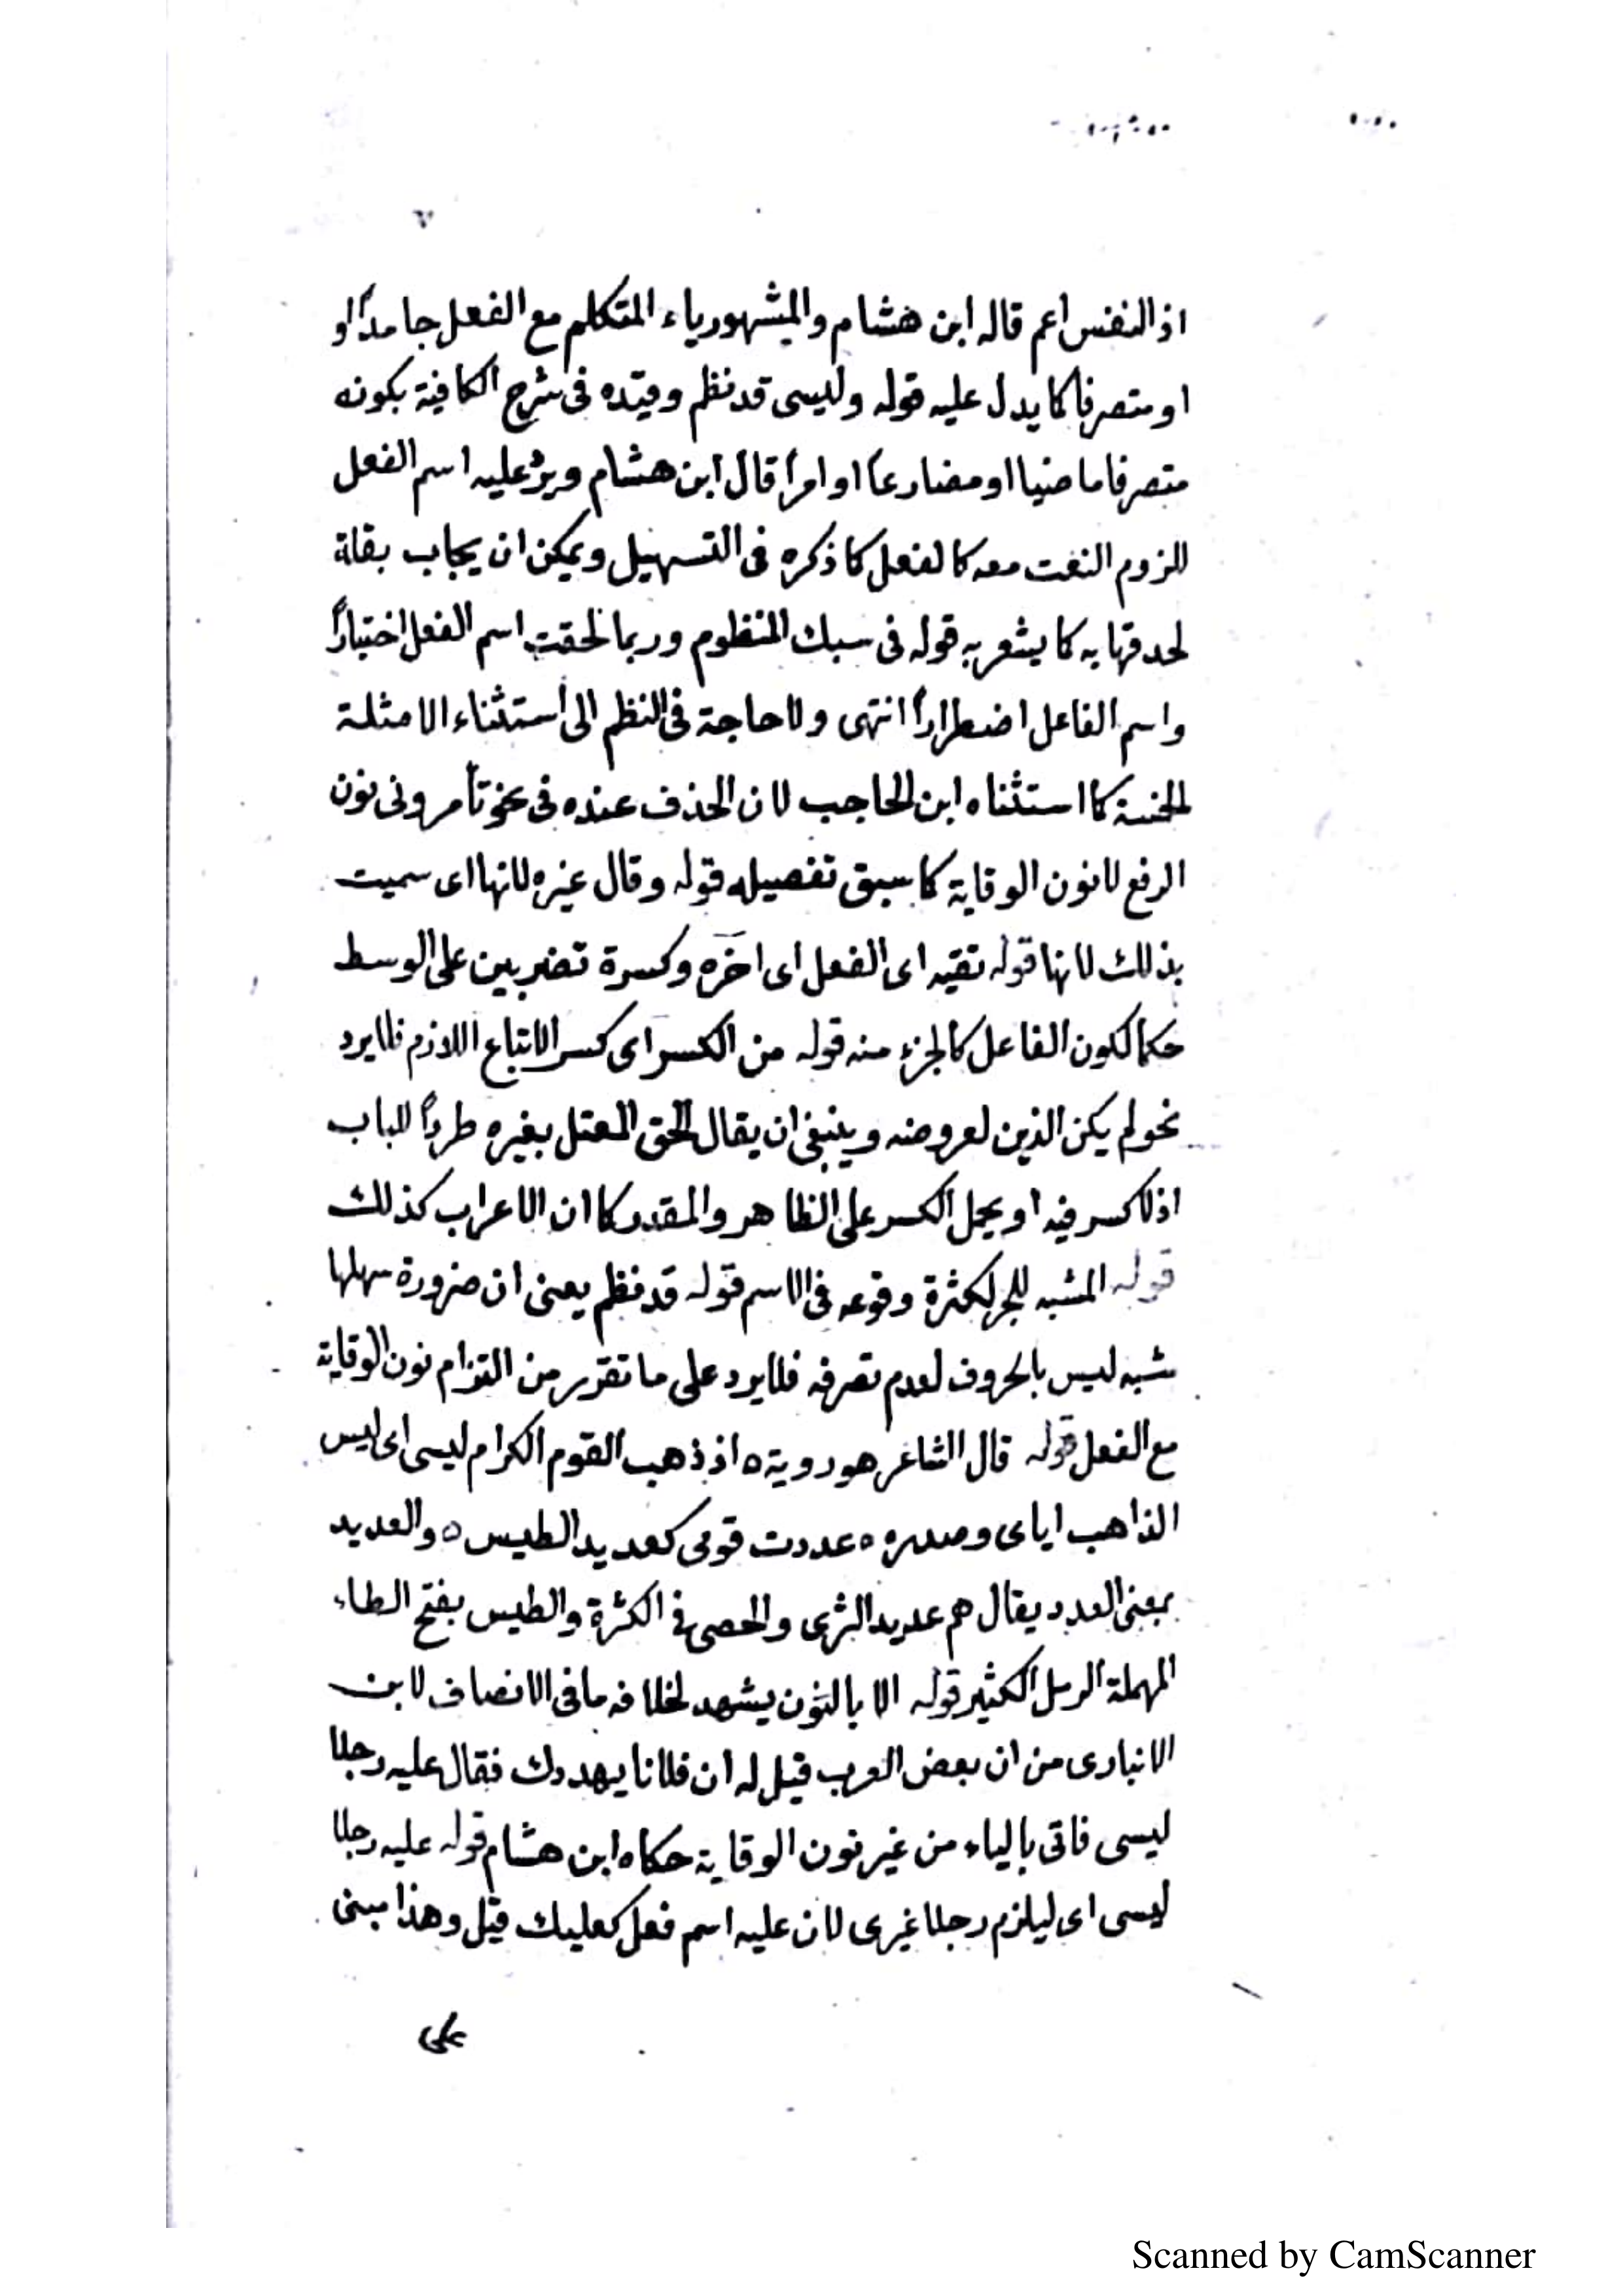 اذ النفس اعم قاله ابن هشام والمشهور ياء المتكلم مع الفعل جامداً او
او متصرفا كما يدل عليه قوله وليسى قد نظم وقيّده فى شرح الكافية بكونه
متصرفا ماضيا او مضارعاً او امراً قال ابن هشام ويردُ عليه اسم الفعل
للزوم النون معه كالفعل كما ذكره فى التسهيل ويمكن ان يجاب بقلة
لحوقها به كما يشعر به قوله فى سبك المنظوم وربما لحقت اسم الفعل اختياراً
واسم الفاعل اضطراراً انتهى ولا حاجة فى النظم الى استثناء الامثلة
الخمسة كما استثناه ابن الحاجب لان الحذف عنده فى نحو تأمرونى نون
الرفع لا نون الوقاية كما سبق تفصيله قوله وقال غيره لانها اى سميت
بذلك لانها قوله تقيه اى الفعل اى اخره وكسرة تضربين على الوسط
حكما لكون الفاعل كالجزء منه قوله من الكسر اى كسر الاتباع اللازم فلا يرد
نحو لم يكن الذين لعروضه وينبغى ان يقال الحق المعتل بغيره طرداً للباب
اذ لا كسر فيه او يحمل الكسر على الظاهر والمقدر كما ان الاعراب كذلك
قوله المشبه للجر لكثرة وقوعه فى الاسم قوله قد نظم يعنى ان ضرورة سهلها
شبه ليس بالحروف لعدم تصرفه فلا يرد على ما تقرر من التزام نون الوقاية
مع الفعل قوله قال الشاعر هو روبة ه اذ ذهب القوم الكرام ليسى اى ليس
الذاهب اياى وصدره ه عددت قومى كعديد الطيس ه والعديد
بمعنى العدد يقال هم عديد الثرى والحصى فى الكثرة والطيس بفتح الطاء
المهملة الرمل الكثير قوله الا بالنون يشهد لخلافه ما فى الانصاف لابن
الانبارى من ان بعض العرب قيل له ان فلانا يهددك فقال عليه رجلا
ليسى فاتى بالياء من غير نون الوقاية حكاه ابن هشام قوله عليه رجلا
ليسى اى ليلزم رجلا غيرى لان عليه اسم فعل كعليك قيل وهذا مبنى
على
Scanned by CamScanner